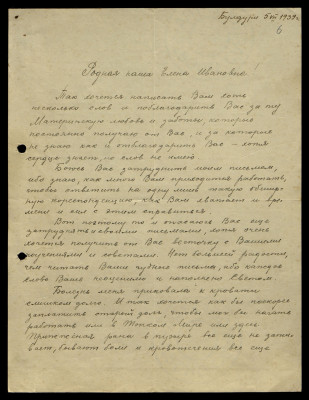 Булдури 5 VII 1939 г.
6
Родная наша Елена Ивановна!
Так хочется написать Вам хоть
несколько слов и поблагодарить Вас за ту
Материнскую любовь и заботы, которые
постоянно получаю от Вас, и за которые
не знаю как и отблагодарить Вас – хотя
сердце знает, но слов не имею.
Боюсь Вас затруднять моим письмом,
ибо знаю, как много Вам приходится работать,
чтобы ответить на одну лишь только обшир-
ную корреспонденцию, как Вам хватает и вре-
мени и сил с этим справиться.
Вот поэтому-то и опасаюсь Вас еще
затруднять своими письмами, хотя очень
хочется получить от Вас весточку с Вашими
указаниями и советами. Нет большей радости,
чем читать Ваши чудные письма, ибо каждое
слово Ваше насыщено и наполнено Светом.
Болезнь меня приковала к кровати
слишком долго. И так хочется как бы поскорее
заплатить старый долг, чтобы мог бы начать
работать или в Тонком Мире или здесь.
Пролежная рана в пузыре все еще не зажи-
вает, бывают боли и кровотечения все еще